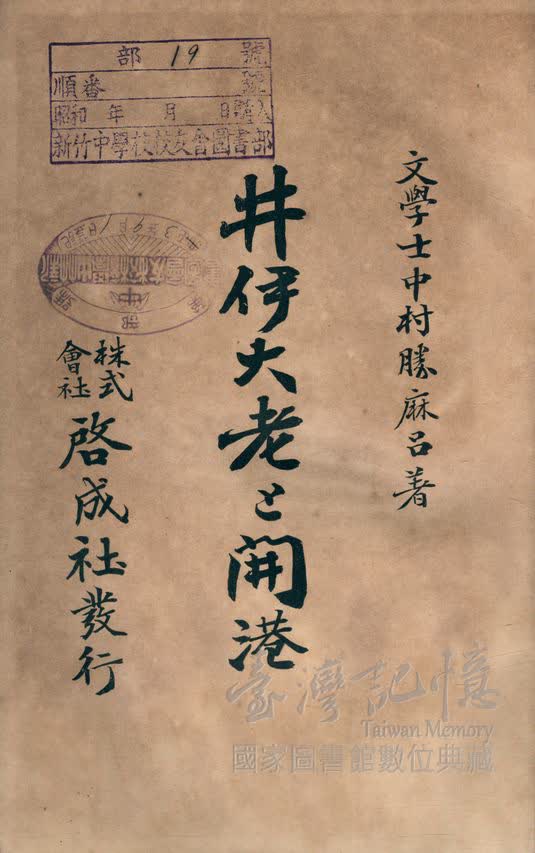 部 19 號
順番 號
昭和 年 月 日購入
新竹中學校校友會圖書部
文學士中村勝麻呂著
井伊大老と開港
株式會社 啓成社發行
臺灣記憶
Taiwan Memory
國家圖書館數位典藏